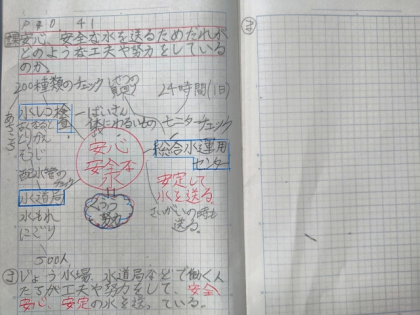 P40 41
安心、安全な水を送るためだれが
どのような工夫や努力をしている
のか。
200種類のチェック
24時間(1日)
水しつ検査
ばいきん
体にわるいもの
モニターチェック
安心
安全な
水
総合水運用
センター
配水管の
チェック
安定して
水を送る
さいがいの時も
送る。
水道局
くふう
努力
水もれ
にごり
500人
じょう水場、水道局などで働く人
たちが工夫や努力をして、安全
安心、安定の水を送っている。